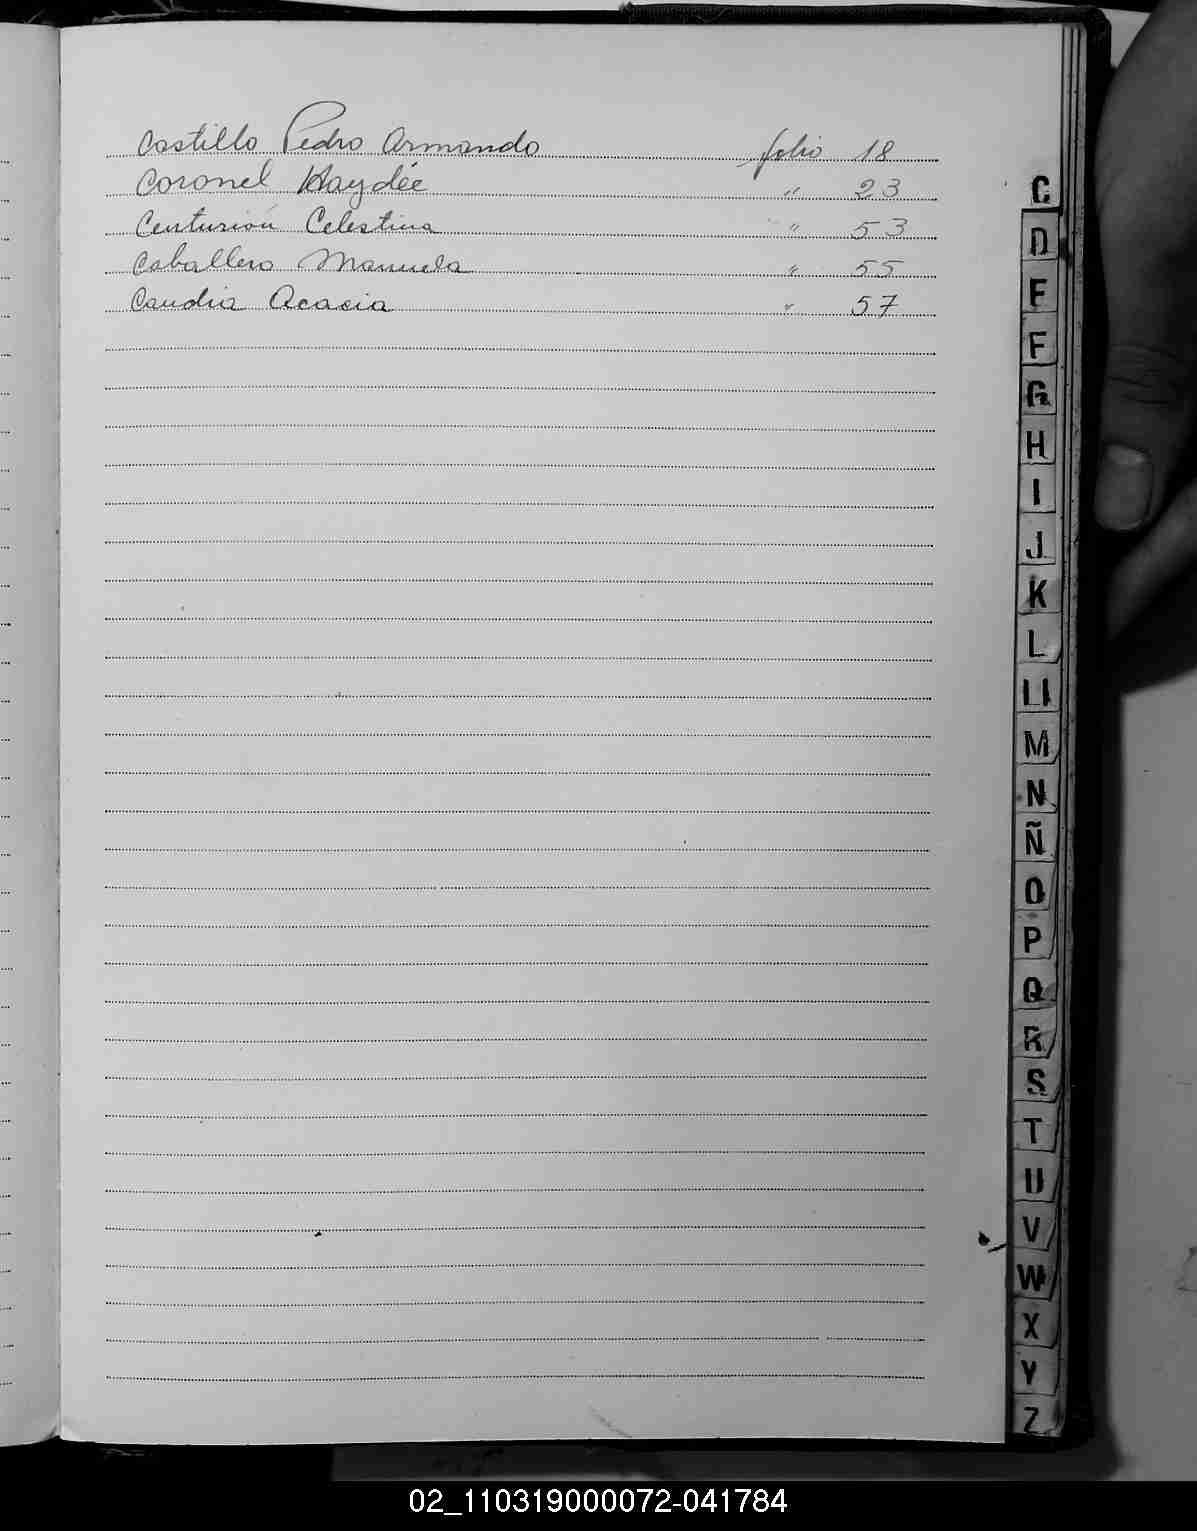 Castillo Pedro Armando folio 18
Coronel Haydée " 23
Centurión Celestina " 53
Caballero Manuela " 55
Candia Acacia " 57
C
D
E
F
G
H
I
J
K
L
Ll
M
N
Ñ
O
P
Q
R
S
T
U
V
W
X
Y
Z
02_110319000072-041784